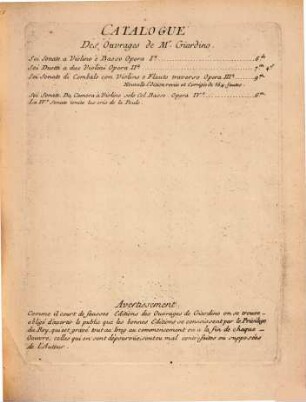 CATALOGUE
Des Ouvrages de Mr. Giardino.
Sei Sonate a Violino e Basso Opera Ia.
Sei Duetti a due Violini Opera IIa.
Sei Sonate di Cembalo con Violino o Flauto traverso Opera IIIa.
Nouvelle Edition revue et Corrigée de 164 fautes.
Sei Sonate Da Camera à Violino solo Col Basso. Opera IVa.
La IVe Sonate imite les cris de la Poule.
Avertissement.
Comme il court de fausses Editions des Ouvrages de Giardino on se trouve
obligé d'avertir le public que les bonnes Editions se connoissent par le Privilege
du Roy, qui est gravé tout au long au commencement ou a la fin de chaque
Oeuvre; celles qui en sont dépourvües sont ou mal contrefaites ou supposées
de l'Auteur.